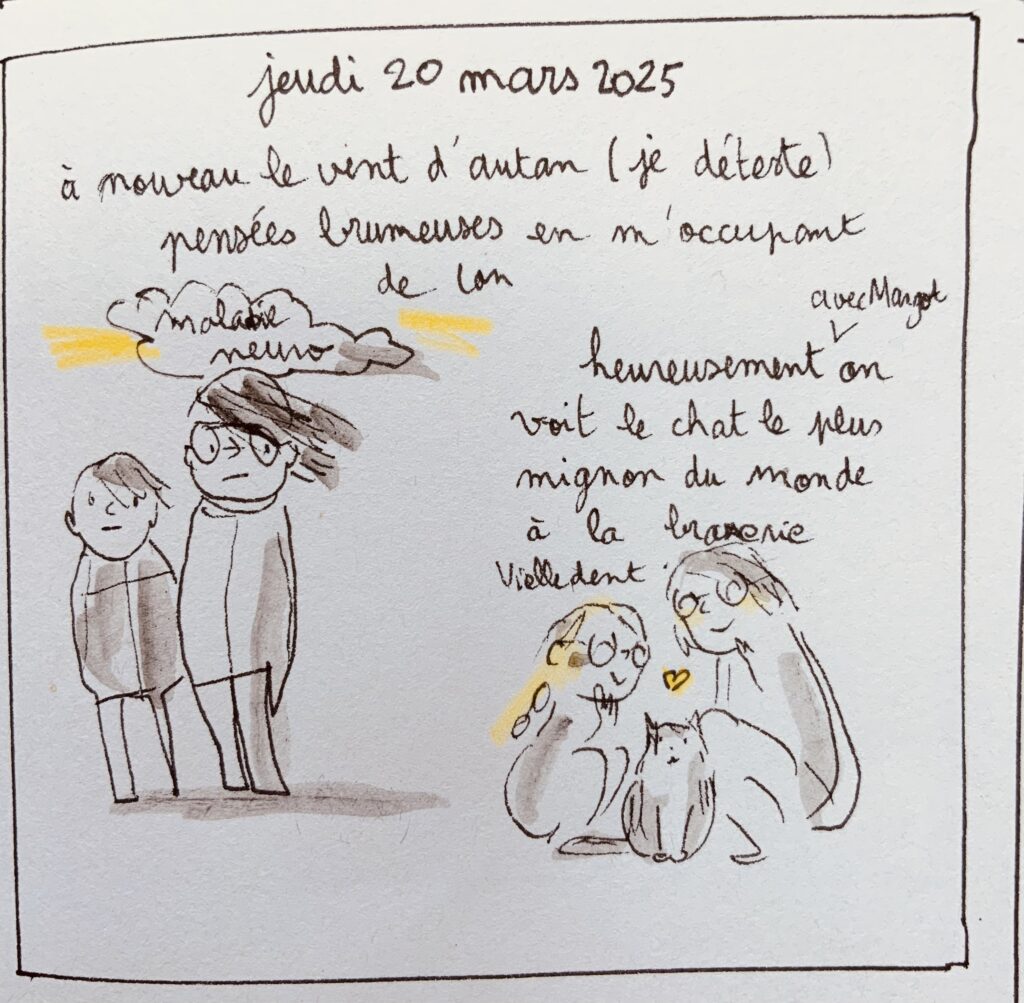 jeudi 20 mars 2025
à nouveau le vent d'autan (je déteste)
pensées brumeuses en m'occupant
de Lon
maladie
neuro
avec Margot
heureusement on
voit le chat le plus
mignon du monde
à la
Vielledent